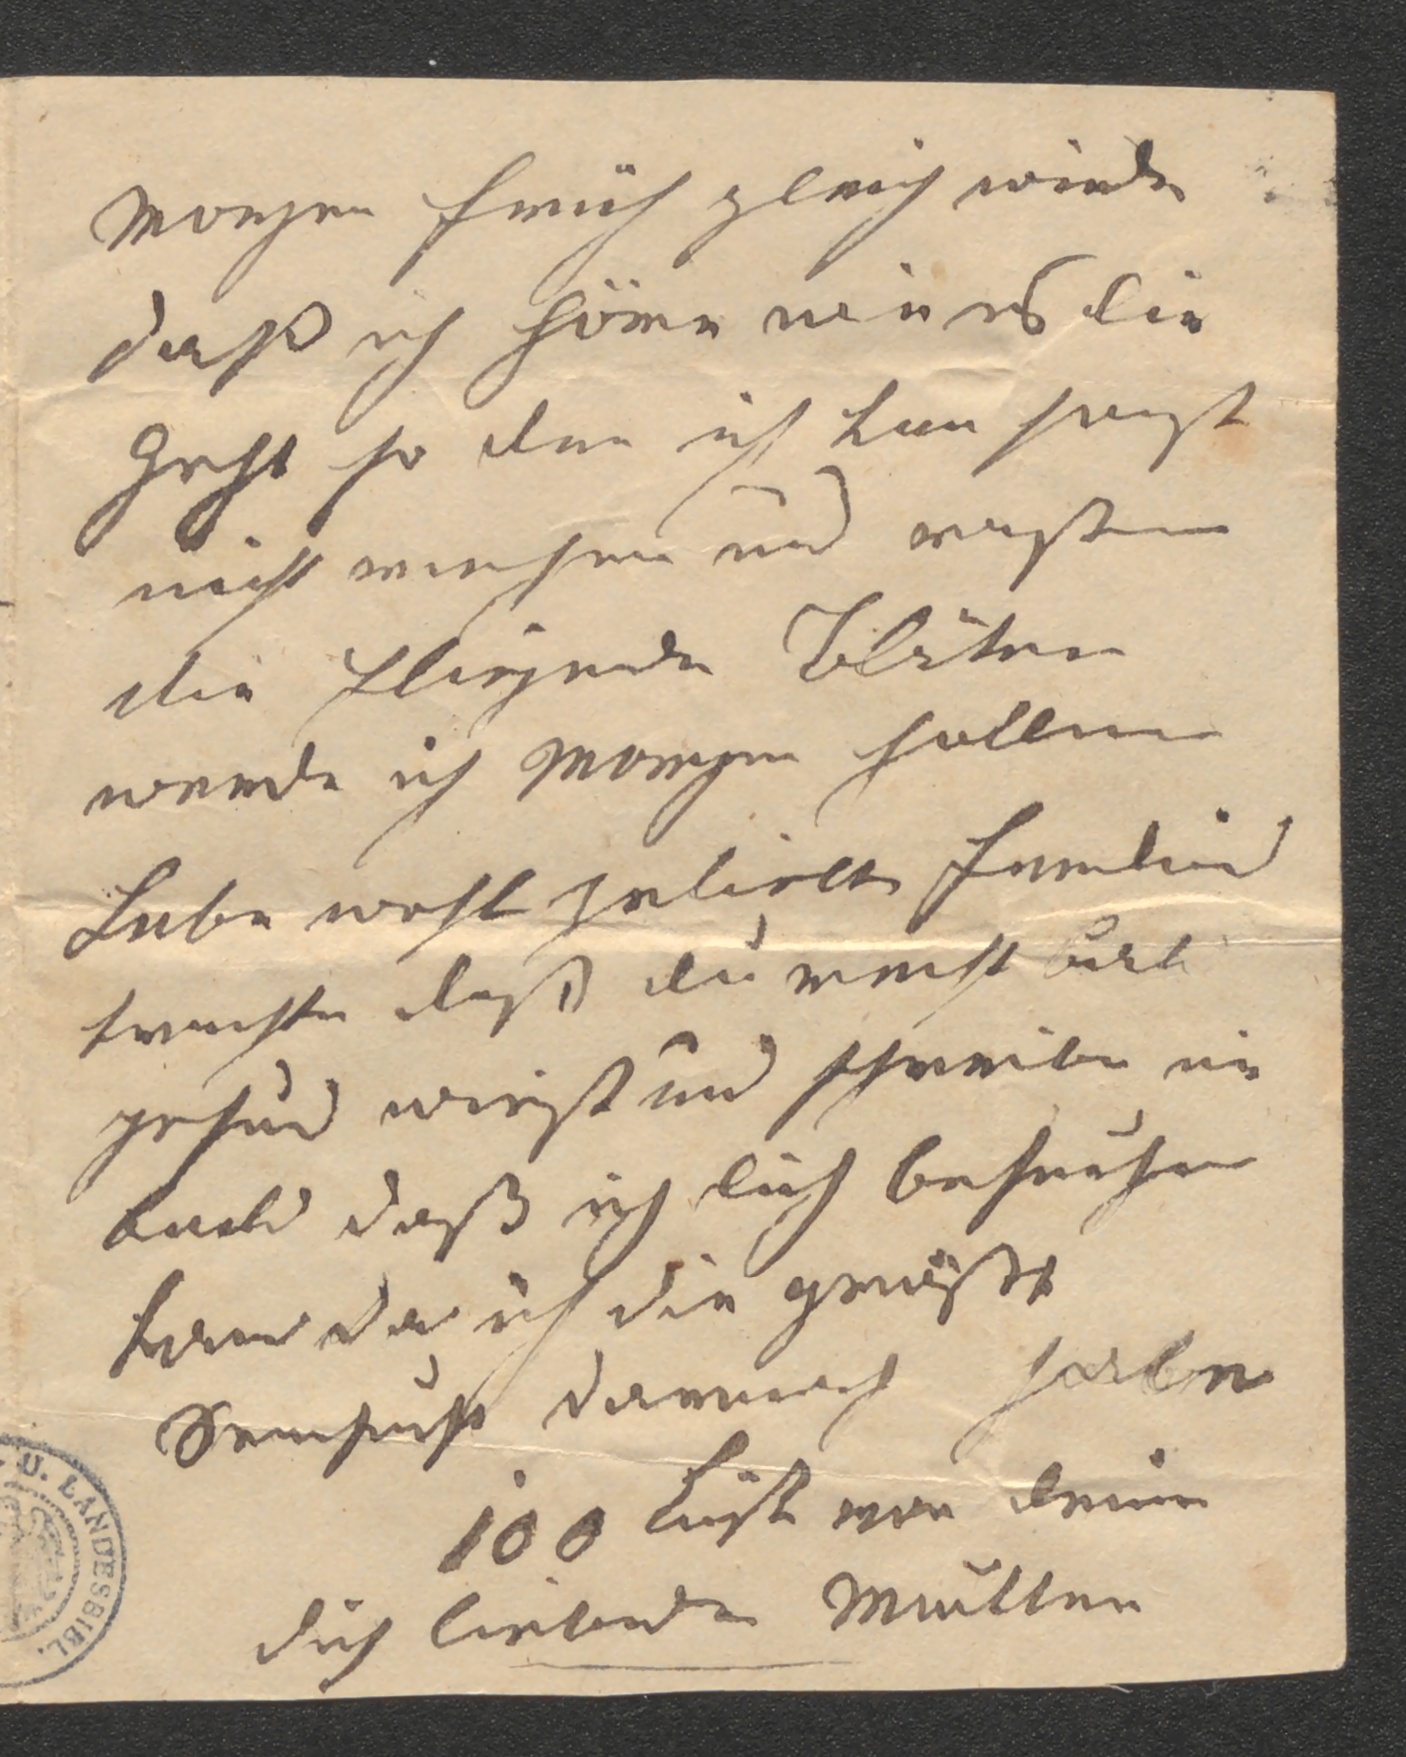 Morgen früh gleich wieder
daß ich höre wie es dir
Geht so den ich kan sonst
nicht ruhen und rasten
die fliegende Bläter
werde ich Morgen hollen
Lebe wohl geliebtes
trachte daß du recht bald
gesund wirst und schreibe mir
bald daß ich dich besuchen
kan da ich die größte
Sensucht darnach habe
100 Küße von deiner
dich liebenden Mutter
U. LANDESBIBL.